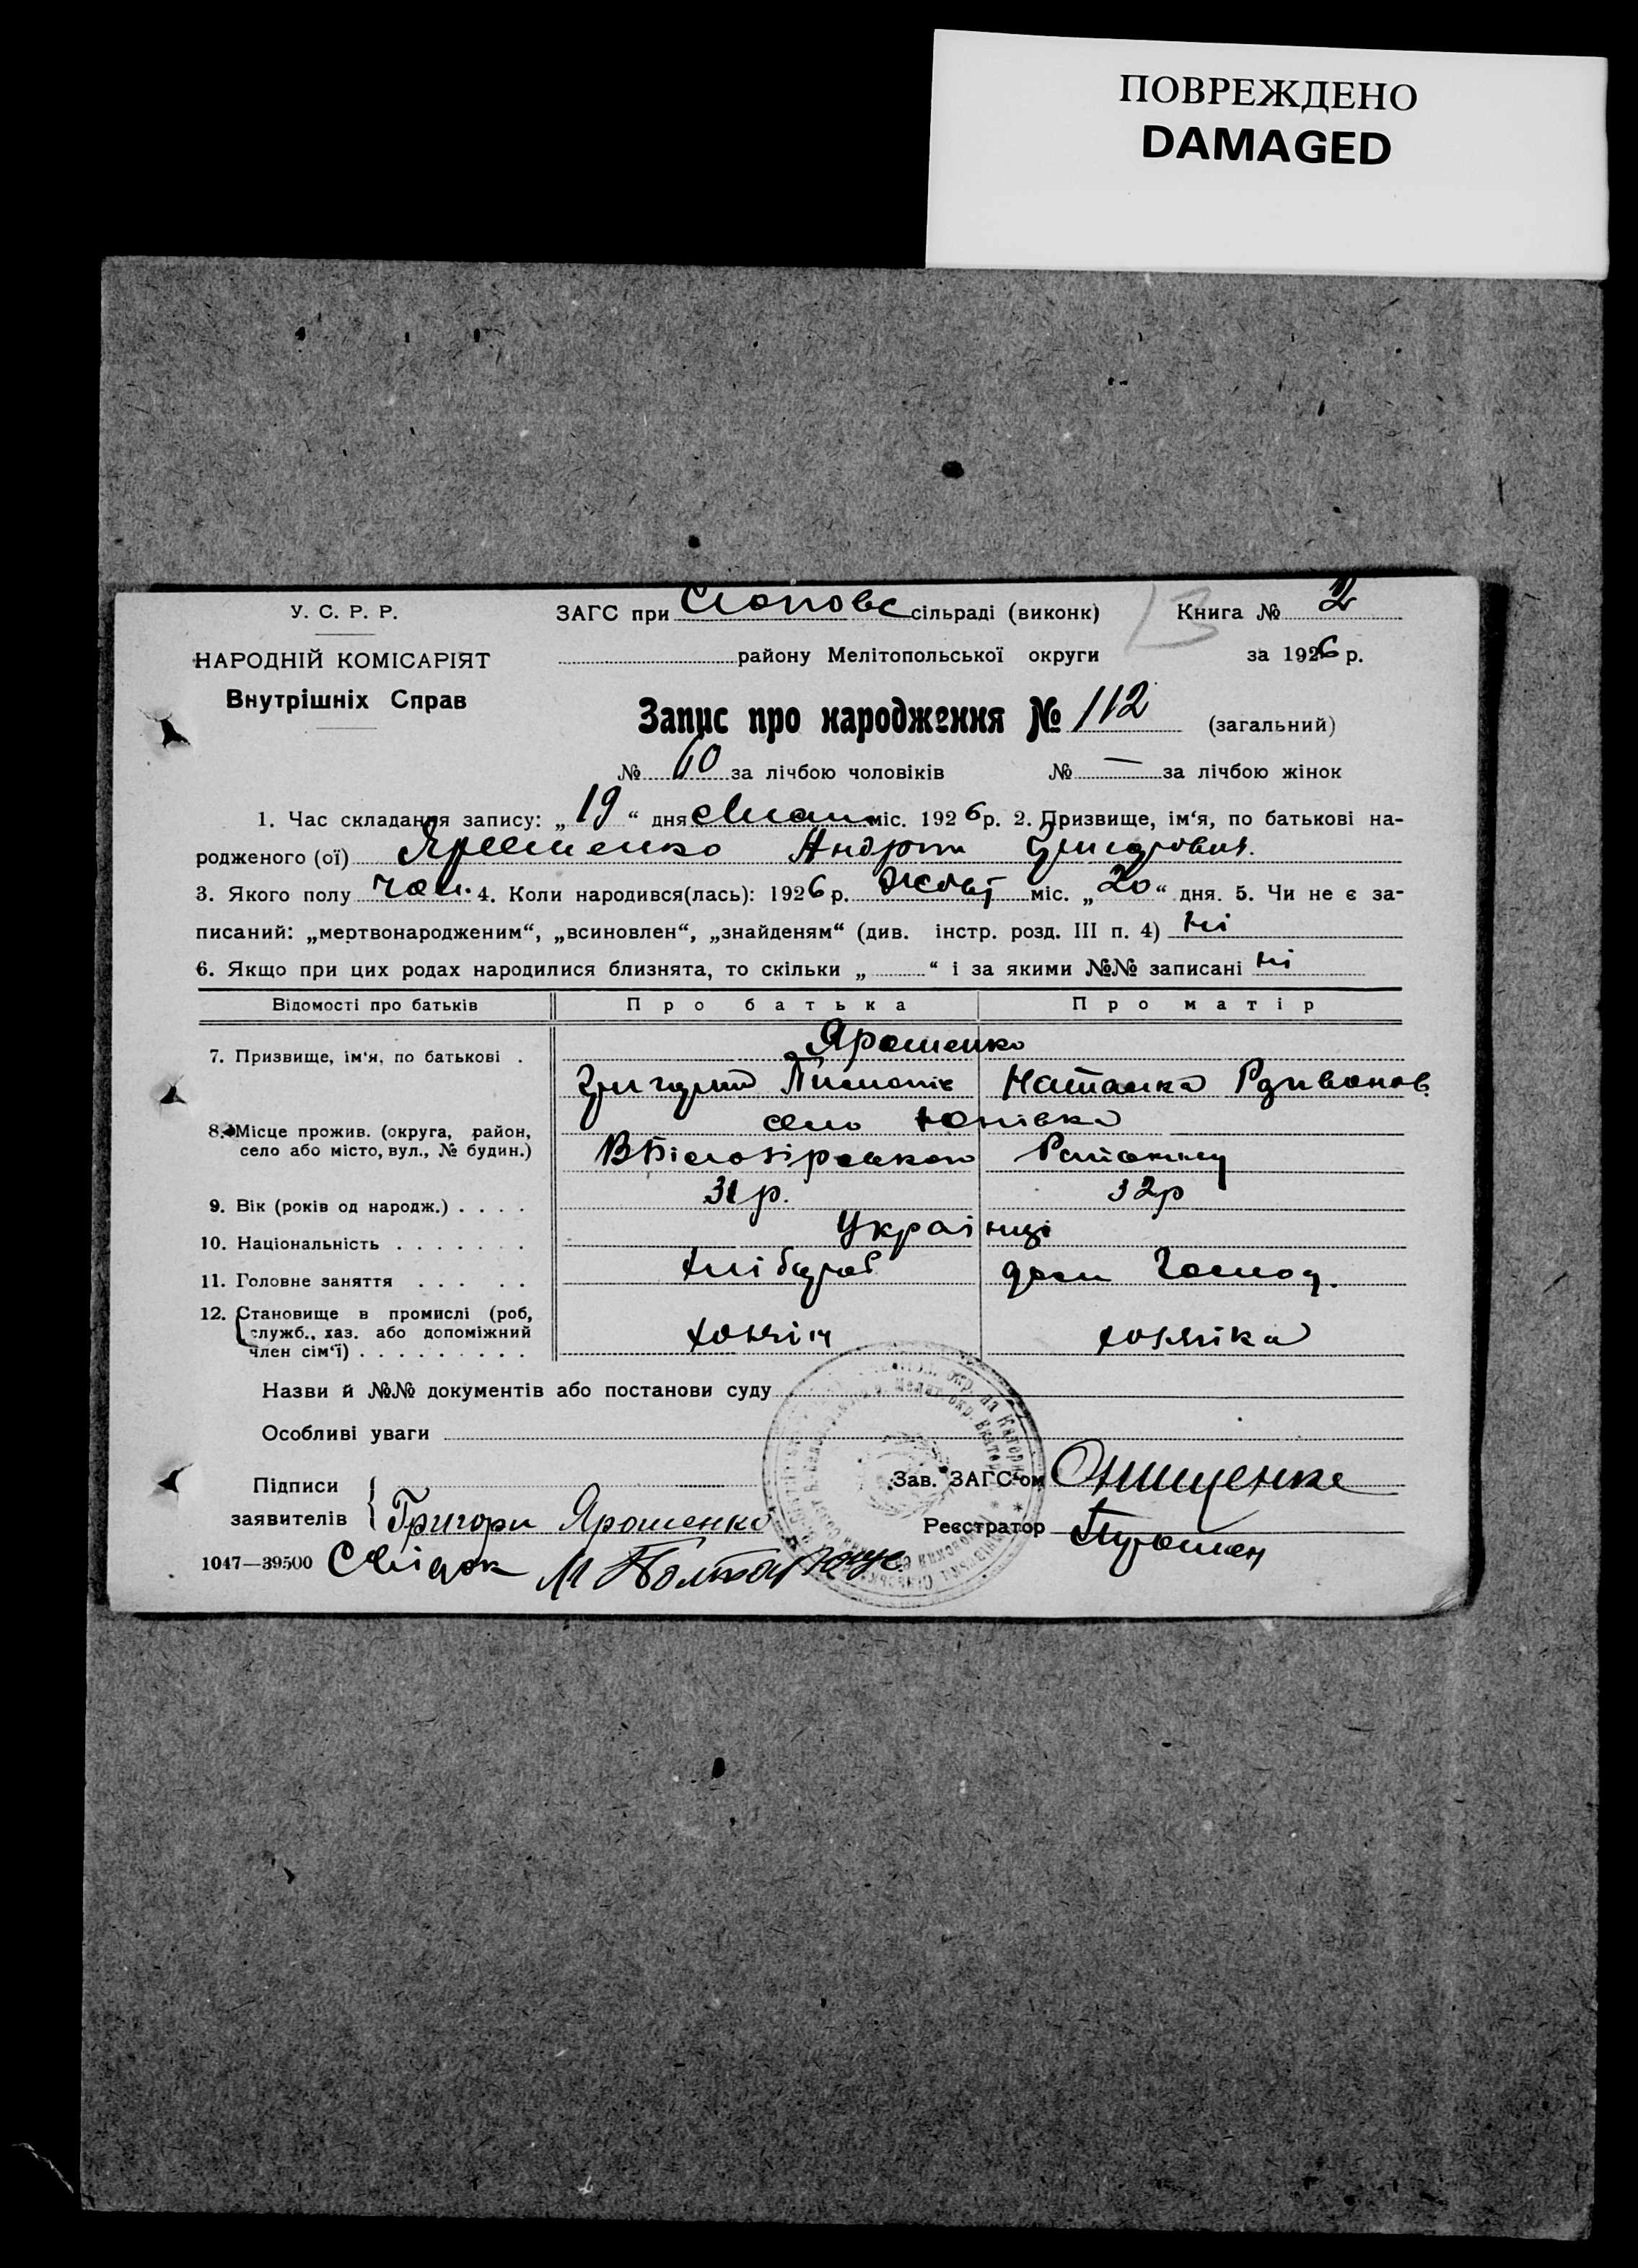 ПОВРЕЖДЕНО
DAMAGED
У. С. Р. Р.
НАРОДНІЙ КОМІСАРІЯТ
Внутрішніх Справ
ЗАГС при сільраді (виконк)
Книга № 2
району Мелітопольської округи
за 1926 р.
Запис про народження № 112 (загальний)
№ 60 за лічбою чоловіків № — за лічбою жінок
1. Час складання запису: „19“ дня міс. 1926 р. 2. Призвище, ім‘я, по батькові на-
родженого (ої) Ярошенко Андрій Григорович.
3. Якого полу чол. 4. Коли народився(лась): 1926 р. міс. „20“ дня. 5. Чи не є за-
писаний: „мертвонародженим“, „всиновлен“, „знайденям“ (див. інстр. розд. III п. 4) ні
6. Якщо при цих родах народилися близнята, то скільки „ “ і за якими №№ записані ні
Відомості про батьків Про батька Про матір
7. Призвище, ім‘я, по батькові . Ярошенко
Григорий Наталка
8. Місце прожив. (округа, район, село або місто, вул., № будин.) село Юнівка
В Білозірського Району
9. Вік (років од народж.) . . . . 31 р. 32 р
10. Національність . . . . . . . Українці
11. Головне заняття . . . . . Хлібороб дом. Господ.
12. Становище в промислі (роб, служб., хаз. або допоміжний член сім‘ї) . . . . . . . . . хозяїн хозяїка
Назви й №№ документів або постанови суду
Особливі уваги
Підписи
заявителів
Григори Ярошенко
Зав. ЗАГС‘ом Онищенко
Реєстратор
1047—39500 Свідок